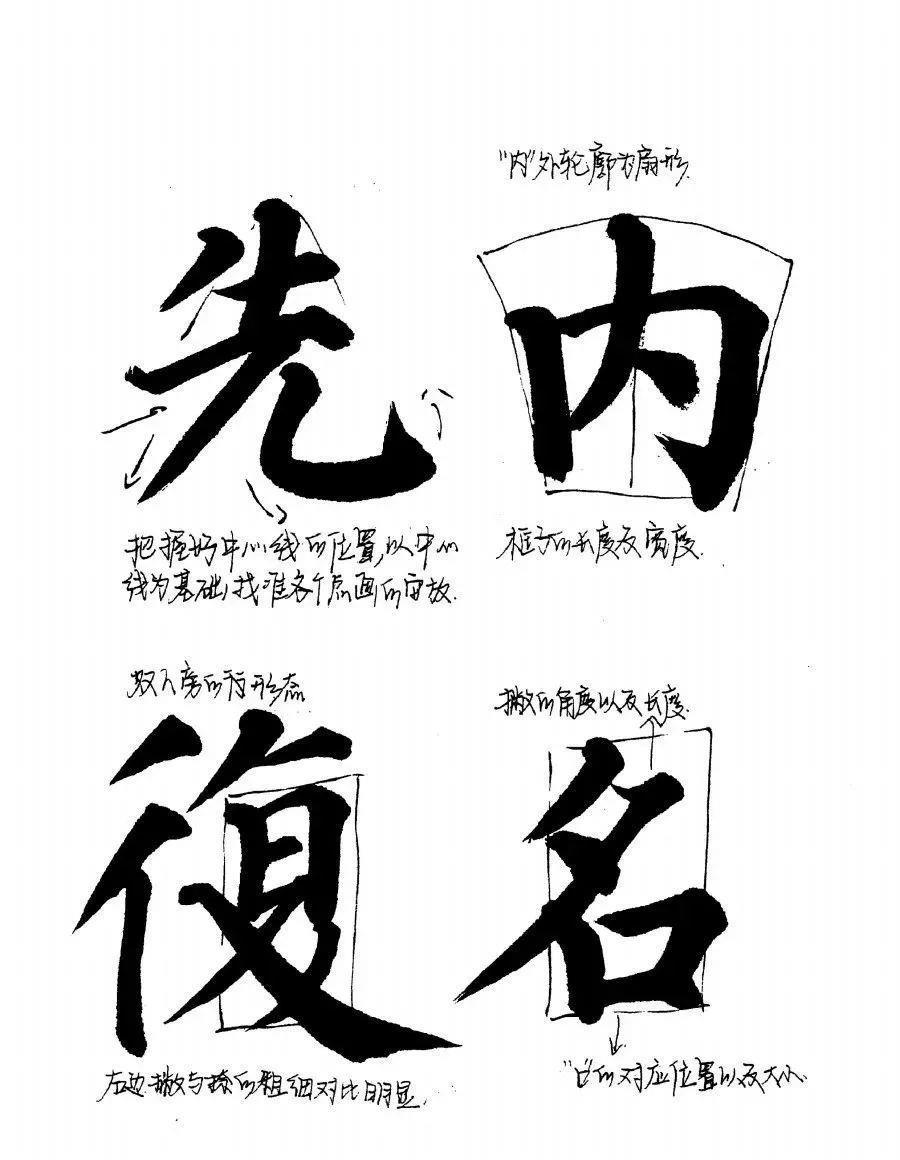 先
把握好中心线的位置,以中心
线为基础,找准各个点画的安放.
"内"外轮廓为扇形.
内
框子的长度及宽度.
双人旁的行形态
復
左边撇与捺的粗细对比明显.
撇的角度以及长度.
名
"口"的对应位置以及大小.